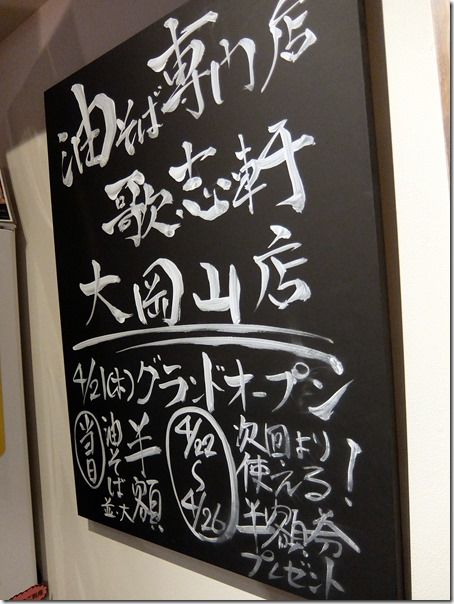 油そば専門店
歌志軒
大岡山店
4/21(木)グランドオープン
当日
油そば
並・大
半額
4/22
〜
4/26
次回より
使える!
半額券
プレゼント